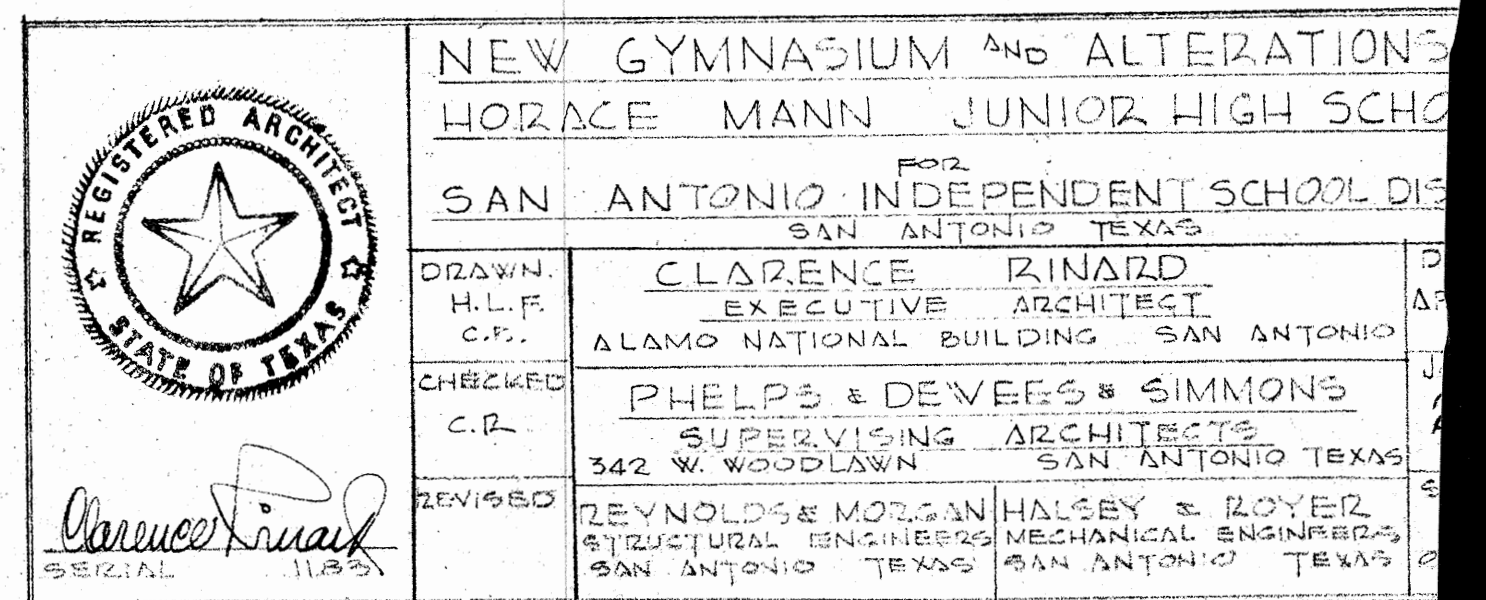 REGISTERED ARCHITECT
STATE OF TEXAS
Clarence Rinard
SERIAL 1183
NEW GYMNASIUM AND ALTERATIONS
HORACE MANN JUNIOR HIGH SCHO
FOR
SAN ANTONIO INDEPENDENT SCHOOL DIS
SAN ANTONIO TEXAS
DRAWN.
H.L.F.
C.F..
CLARENCE RINARD
EXECUTIVE ARCHITECT
ALAMO NATIONAL BUILDING SAN ANTONIO
CHECKED
C.R
PHELPS & DEWEES & SIMMONS
SUPERVISING ARCHITECTS
342 W. WOODLAWN SAN ANTONIO TEXAS
REVISED
REYNOLDS & MORGAN
STRUCTURAL ENGINEERS
SAN ANTONIO TEXAS
HALSEY & ROYER
MECHANICAL ENGINEERS
SAN ANTONIO TEXAS